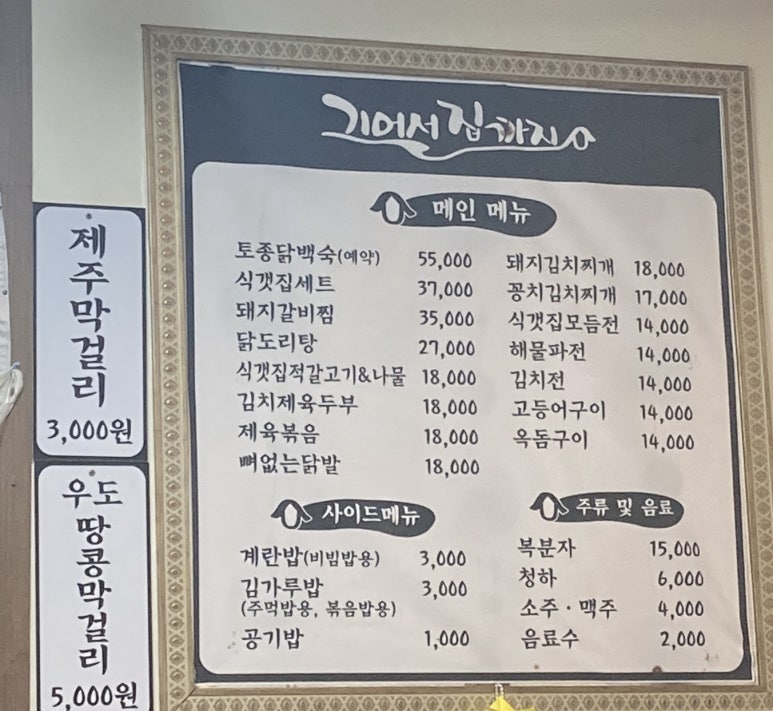 기어서 집까지
메인 메뉴
토종닭백숙(예약) 55,000
식갯집세트 37,000
돼지갈비찜 35,000
닭도리탕 27,000
식갯집적갈고기&나물 18,000
김치제육두부 18,000
제육볶음 18,000
뼈없는닭발 18,000
돼지김치찌개 18,000
꽁치김치찌개 17,000
식갯집모듬전 14,000
해물파전 14,000
김치전 14,000
고등어구이 14,000
옥돔구이 14,000
사이드메뉴
계란밥(비빔밥용) 3,000
김가루밥 3,000
(주먹밥용, 볶음밥용)
공기밥 1,000
주류 및 음료
복분자 15,000
청하 6,000
소주·맥주 4,000
음료수 2,000
제주막걸리
3,000원
우도
땅콩막걸리
5,000원